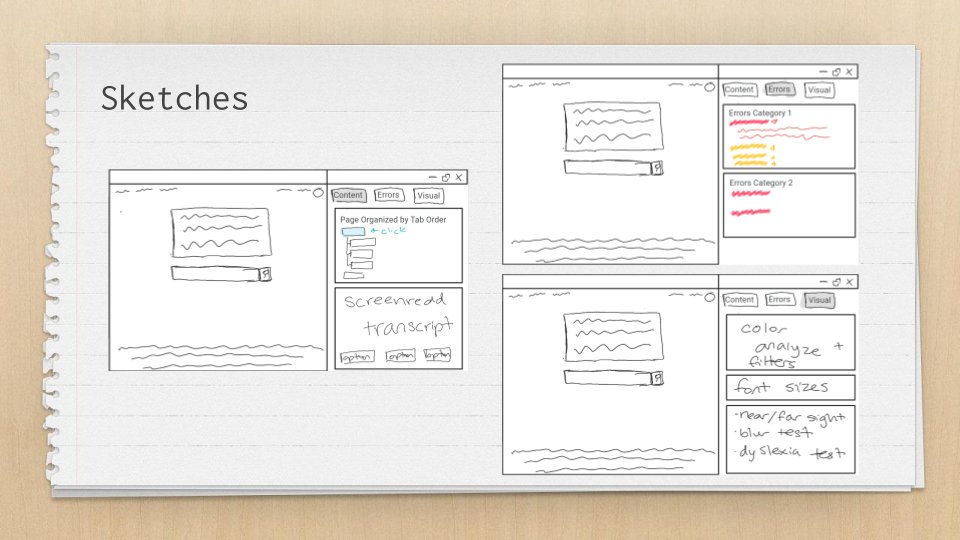 Sketches
Content Errors Visual
Page Organized by Tab Order
click
screenread
transcript
option option option
Content Errors Visual
Errors Category 1
Errors Category 2
Content Errors Visual
color
analyze +
filters
font sizes
·near/far sight
·blur test
·dyslexia test